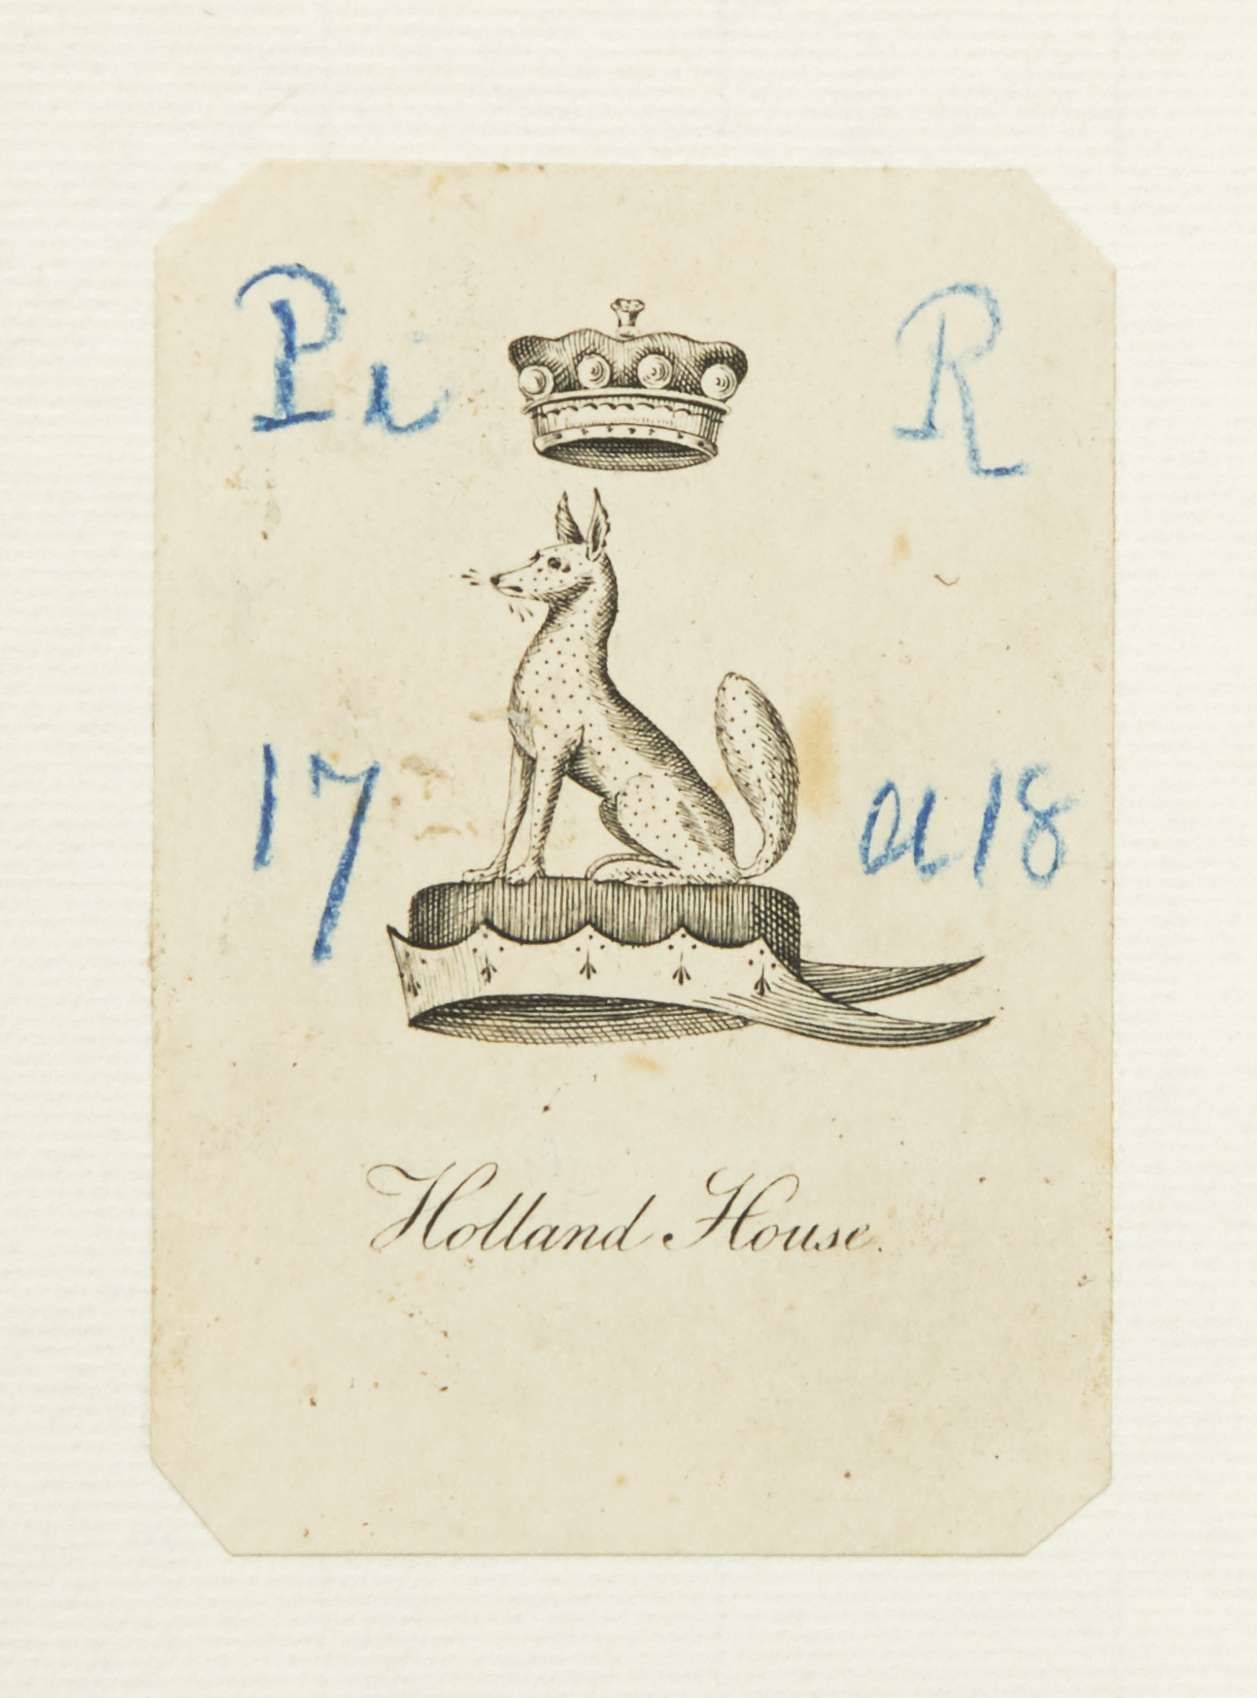 R
17
18
Holland House.